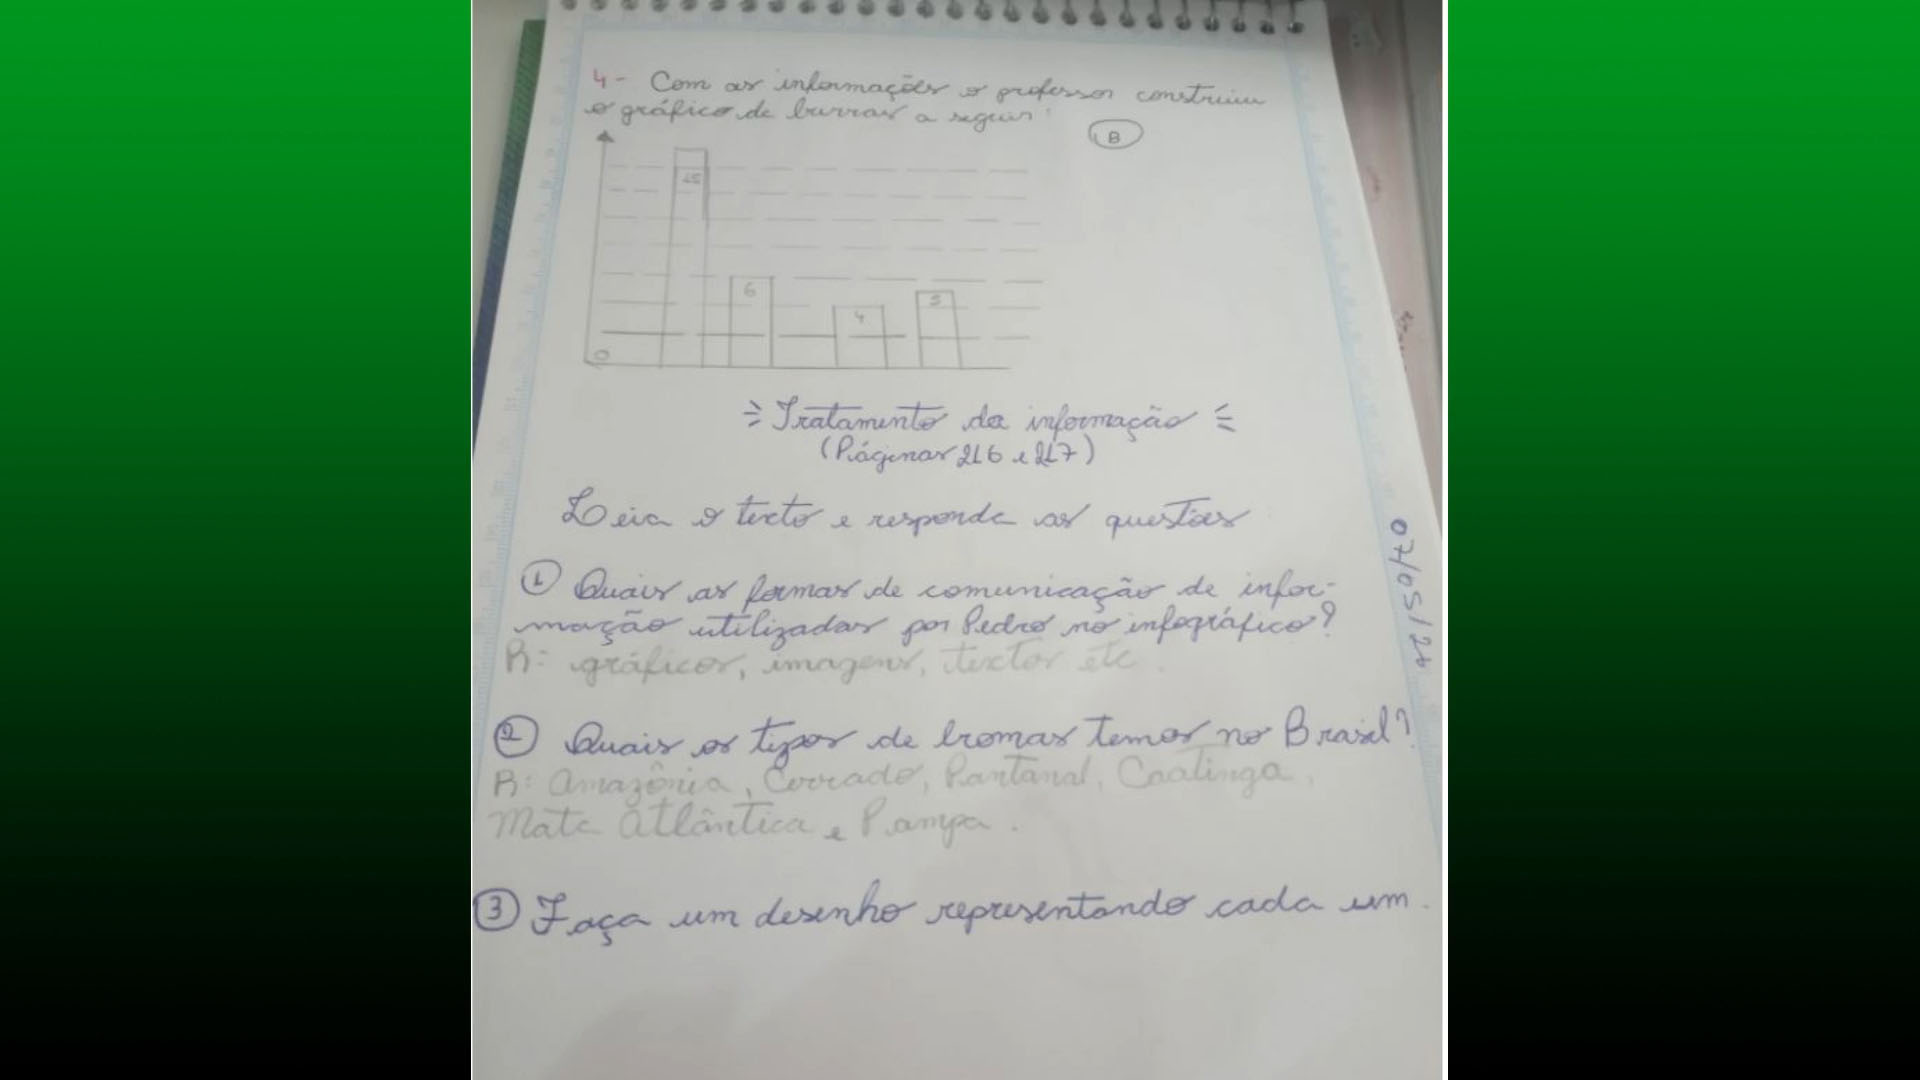 4- Com as informações o professor construiu
o gráfico de barras a seguir:
B
15
6
4
5
0
Tratamento da informação
(Páginas 216 e 217)
Leia o texto e responda as questões
07/05/21
1 Quais as formas de comunicação de infor-
mação utilizadas por Pedro no infográfico?
R: gráficos, imagens, textos etc.
2 Quais os tipos de biomas temos no Brasil?
R: Amazônia, Cerrado, Pantanal, Caatinga,
Mata Atlântica e Pampa.
3 Faça um desenho representando cada um.